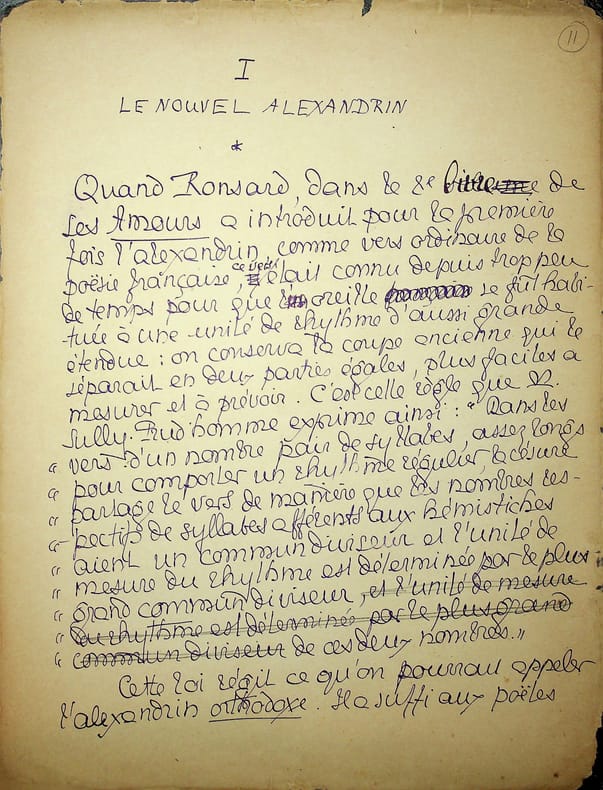 11
I
LE NOUVEL ALEXANDRIN
*
Quand Ronsard, dans le 2e livre de
Les Amours a introduit pour la première
fois l'alexandrin, comme vers ordinaire de la
poésie française, ce vers était connu depuis trop peu
de temps pour que l'oreille se fût habi-
tuée à une unité de rhythme d'aussi grande
étendue : on conserva la coupe ancienne qui le
séparait en deux parties égales, plus faciles a
mesurer et à prévoir. C'est celle règle que M.
Sully-Prudhomme exprime ainsi : " Dans les
" vers d'un nombre pair de syllabes, assez longs
" pour comporter un rhythme régulier, la césure
" partage le vers de manière que les nombres res-
" pectifs de syllabes afférents aux hémistiches
" aient un commun diviseur et l'unité de
" mesure du rhythme est déterminée par le plus
" grand commun diviseur, et l'unité de mesure
" du rhythme est déterminée par le plus grand
" commun diviseur de ces deux nombres. "
Cette loi régit ce qu'on pourrait appeler
l'alexandrin orthodoxe. Il a suffi aux poëtes